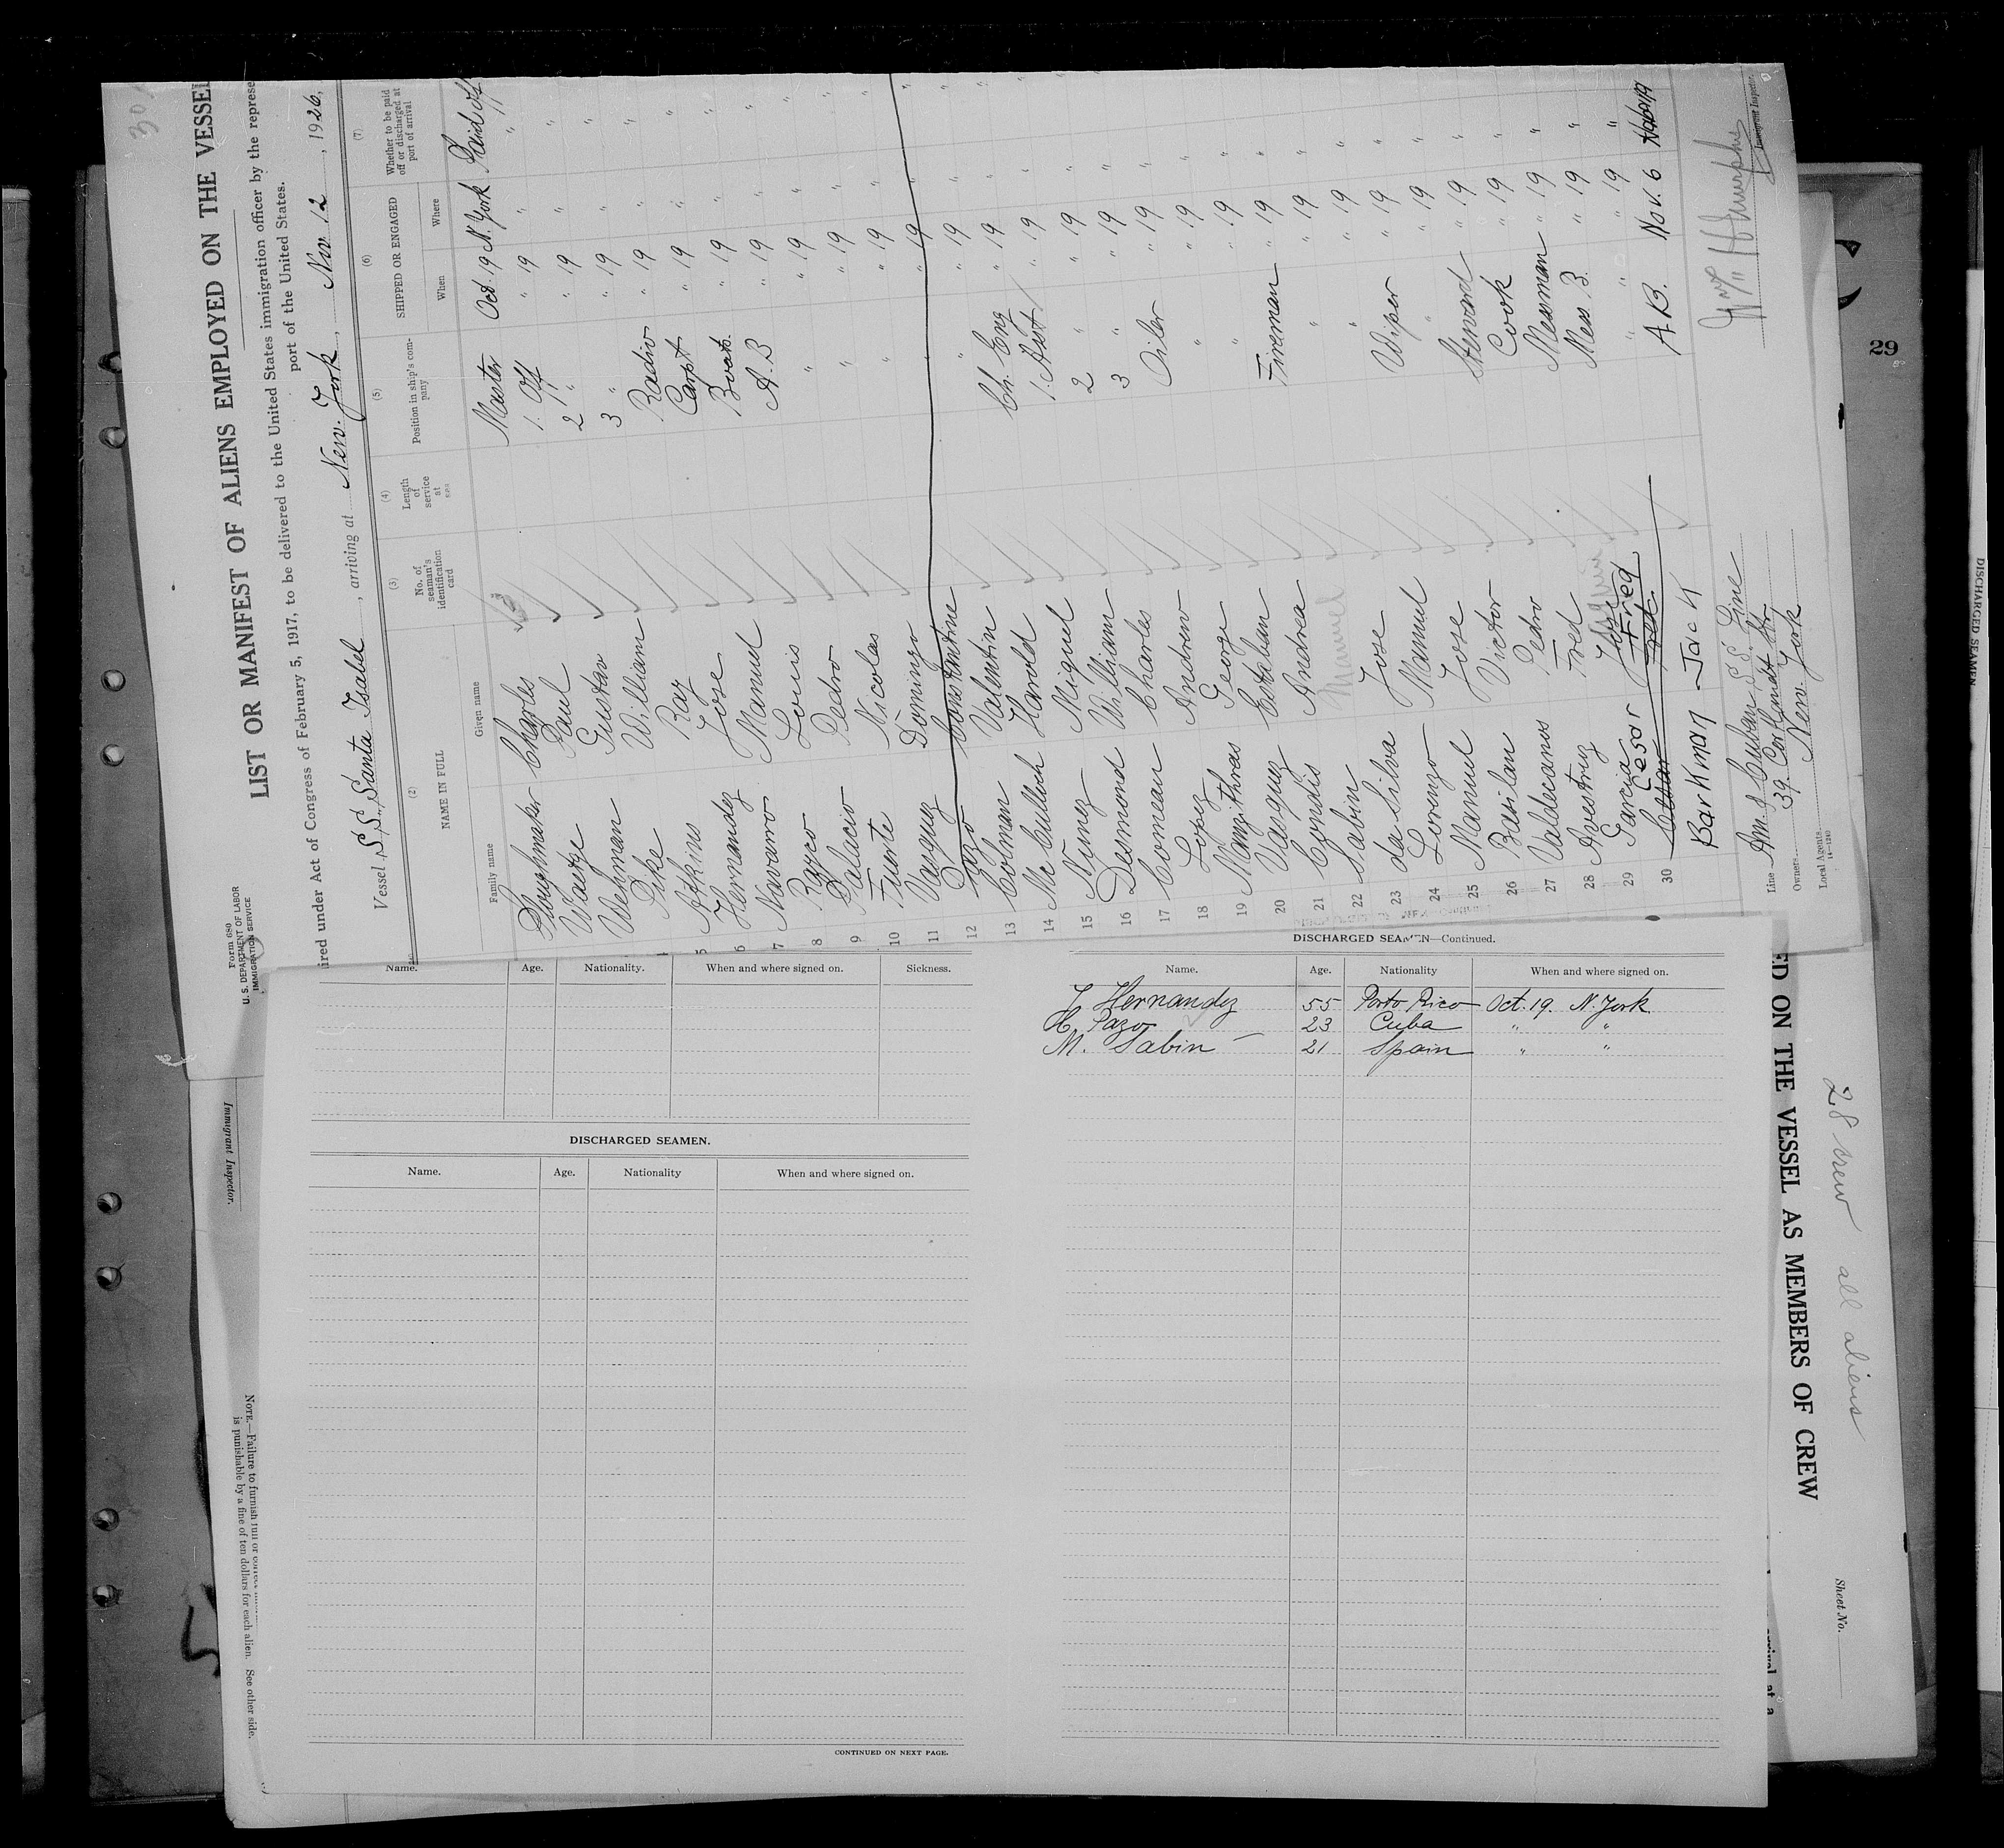 301
Form 680
U. S. DEPARTMENT OF LABOR
IMMIGRATION SERVICE
LIST OR MANIFEST OF ALIENS EMPLOYED ON THE VESSEL
ired under Act of Congress of February 5, 1917, to be delivered to the United States immigration officer by the represe
port of the United States.
Vessel S.S. Santa Isabel, arriving at New. York, Nov. 12, 1926,
(2) (3) (4) (5) (6) (7)
NAME IN FULL
No. of seaman's identification card
Length of service at sea
Position in ship's company
SHIPPED OR ENGAGED
Whether to be paid off or discharged at port of arrival
Family name Given name When Where
Ploughmaker Charles Master Oct. 19 N. York Paid off
Waetge Paul 1. Off " 19 " "
Wehman Gustav 2 " " 19 " "
Pike William 3 " " 19 " "
5 Atkins Ray Radio " 19 " "
6 Hernandez Jose Carpt " 19 " "
7 Navarro Manuel Boats. " 19 " "
8 Rayco Louis A. B " 19 " "
9 Palacio Pedro " " 19 " "
10 Fuerte Nicolas " " 19 " "
11 Vasquez Domingo " 19 " "
12 Pazo Constantine " 19 " "
13 Colman Valentin Ch. Eng " 19 " "
14 Mc Culloch Harold 1. Asst " 19 " "
15 Nunez Miguel 2 " " 19 " "
16 Desmond William 3 " " 19 " "
17 Comeau Charles Oiler " 19 " "
18 Lopez Andrew " " 19 " "
19 Manzithras George " " 19 " "
20 Vasquez Esteban Fireman " 19 " "
21 Condis Andrea " " 19 " "
22 Sabin Manuel " " 19 " "
23 da Silva Jose Wiper " 19 " "
24 Lorenzo Manuel " " 19 " "
25 Manuel Jose Steward " 19 " "
26 Basilan Victor Cook " 19 " "
27 Valdecanos Pedro Messman " 19 " "
28 Avestruz Fred Mess B. " 19 " "
29 Garcia Jose " " 19 " "
Cesar Fred
30
Barkman Jack A. B. Nov. 6
Line Am. & Cuban S.S. Line
Owners 39 Cortlandt Str.
Local Agents New. York
14-1240
Immigrant Inspector.
Name. Age. Nationality. When and where signed on. Sickness.
DISCHARGED SEAMEN.
Name. Age. Nationality When and where signed on.
CONTINUED ON NEXT PAGE.
DISCHARGED SEAMEN—Continued.
Name. Age. Nationality When and where signed on.
J. Hernandez 55 Porto Rico Oct. 19. N. York
C. Pazo 23 Cuba " "
M. Sabin 21 Spain " "
Immigrant Inspector.
NOTE.—Failure to furnish full or
is punishable by a fine of ten dollars for each alien. See other side.
ED ON THE VESSEL AS MEMBERS OF CREW
28 crew all aliens
Sheet No.
arrival at a
29
DISCHARGED SEAMEN